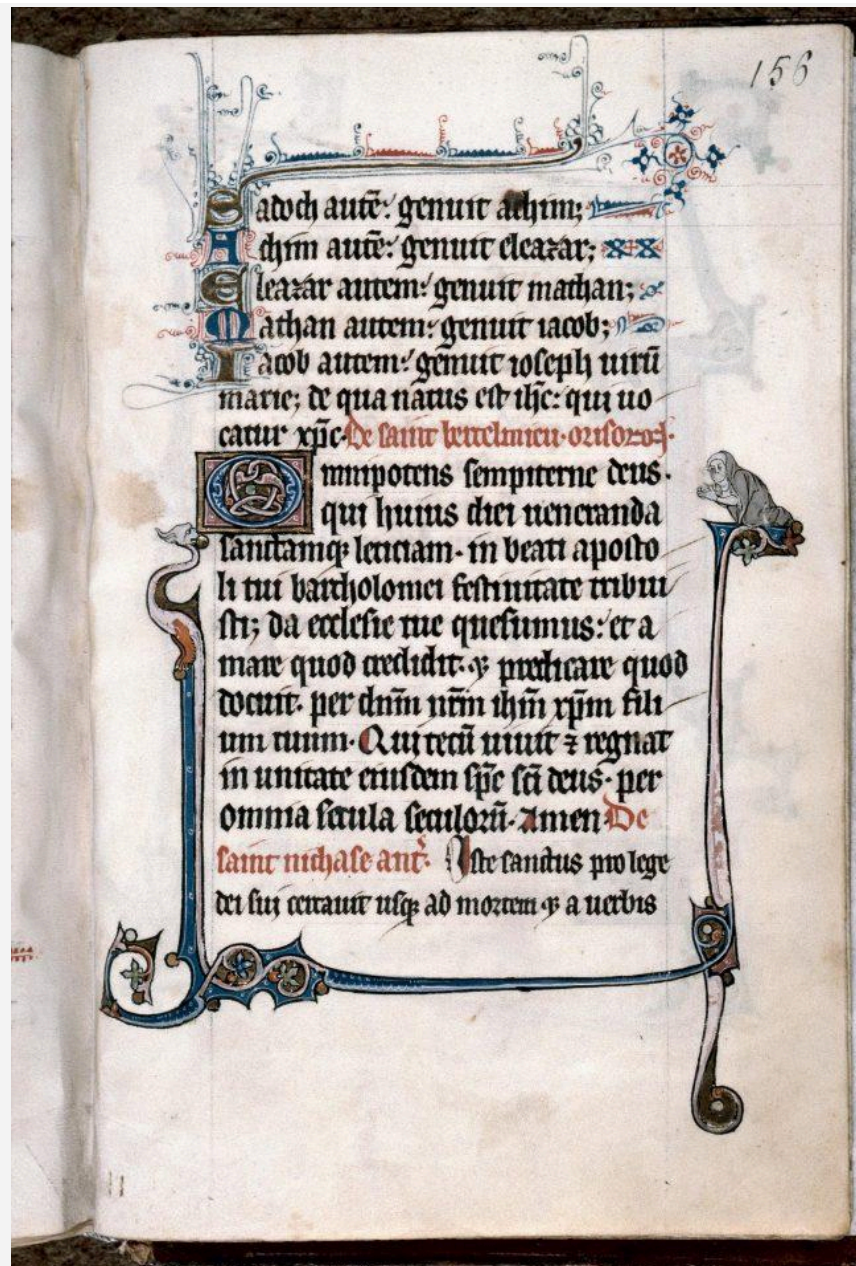 156
Sadoch autē: genuit achim;
Achim autē: genuit eleazar;
Eleazar autem: genuit mathan;
Mathan autem: genuit iacob;
Iacob autem: genuit ioseph uirū
marie; de qua natus est ihc: qui uo
catur xpc. De saint bertelmieu. orisoroꝫ.
Omnipotens sempiterne deus.
qui huius diei ueneranda
sanctamqꝫ leticiam. in beati aposto
li tui bartholomei festiuitate tribui
sti; da ecclesie tue quesumus: et a
mare quod credidit. ⁊ predicare quod
docuit. per dnm nrm ihm xpm fili
um tuum. Qui tecū uiuit ⁊ regnat
in unitate eiusdem spc sci deus. per
omnia secula seculorū. amen. De
saint nichase ant. Iste sanctus pro lege
dei sui certauit usqꝫ ad mortem ⁊ a uerbis